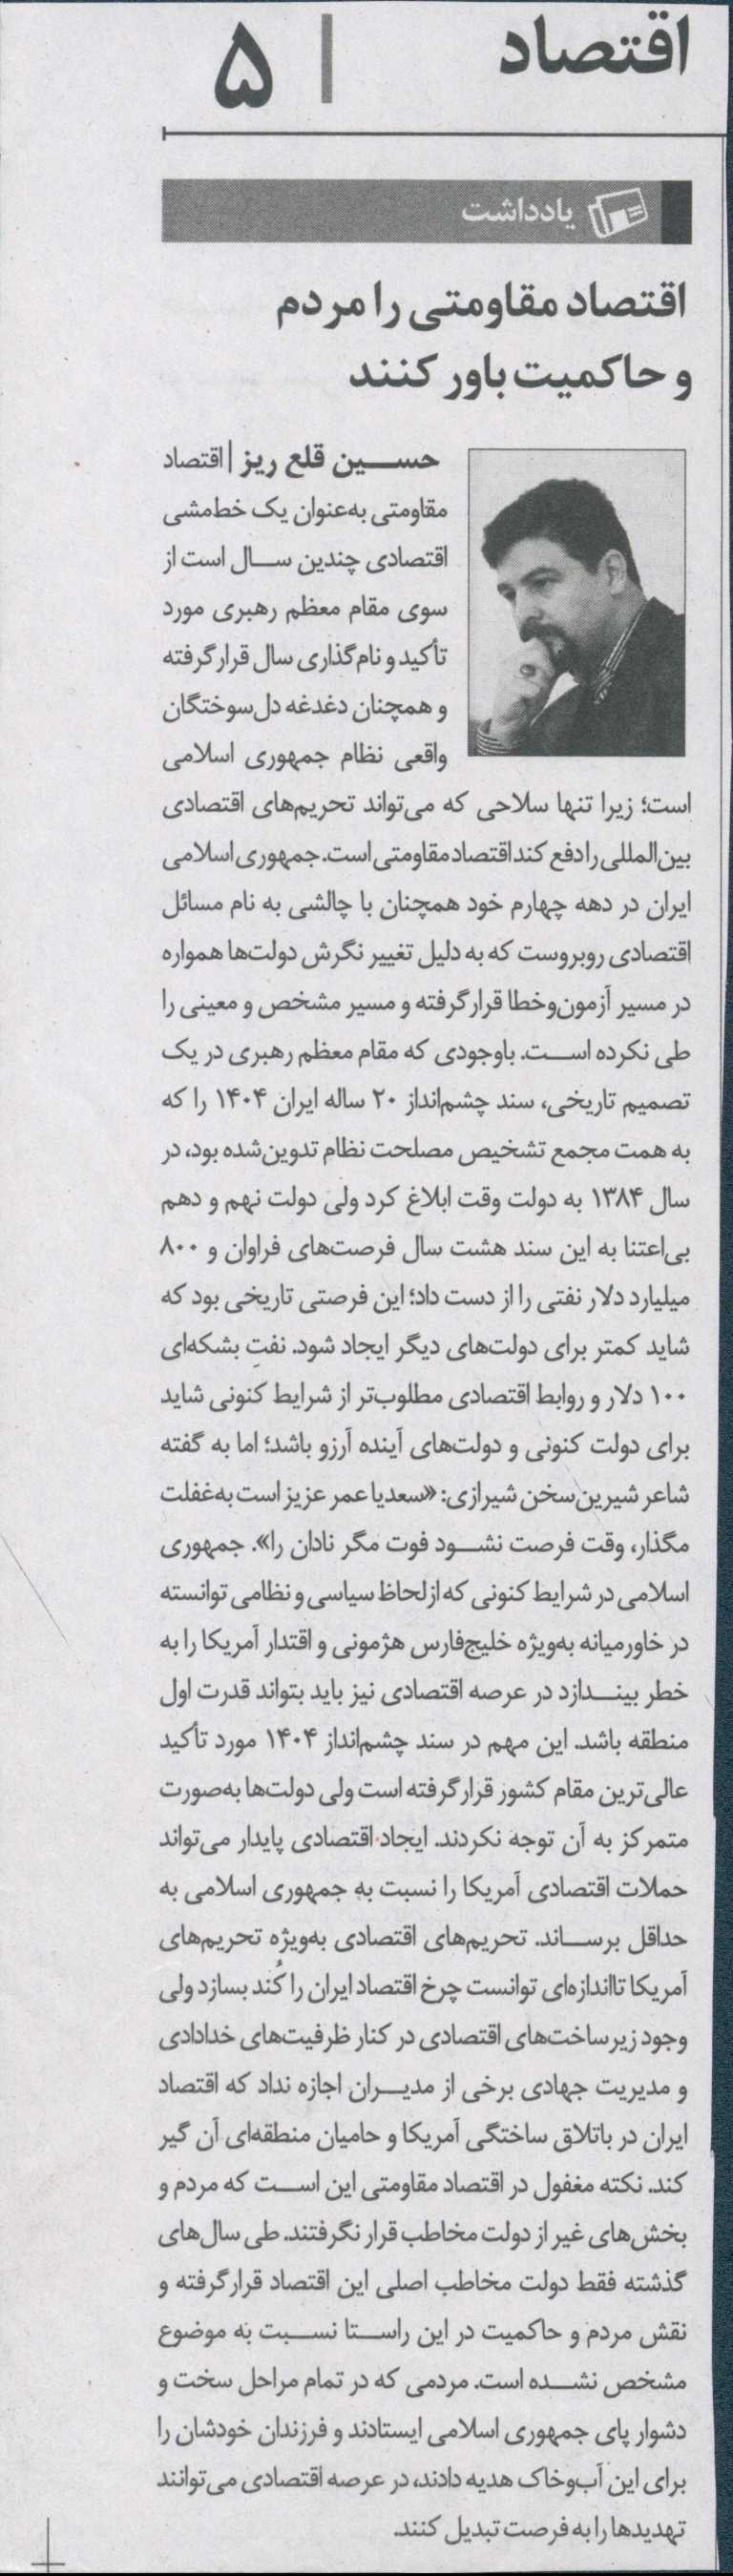 اقتصاد | ۵
یادداشت
اقتصاد مقاومتی را مردم
و حاکمیت باور کنند
حسین قلع ریز | اقتصاد
مقاومتی به‌عنوان یک خط‌مشی
اقتصادی چندین سال است از
سوی مقام معظم رهبری مورد
تأکید و نام‌گذاری سال قرار گرفته
و همچنان دغدغه دل‌سوختگان
واقعی نظام جمهوری اسلامی
است؛ زیرا تنها سلاحی که می‌تواند تحریم‌های اقتصادی
بین‌المللی را دفع کند اقتصاد مقاومتی است. جمهوری اسلامی
ایران در دهه چهارم خود همچنان با چالشی به نام مسائل
اقتصادی روبروست که به دلیل تغییر نگرش دولت‌ها همواره
در مسیر آزمون‌وخطا قرار گرفته و مسیر مشخص و معینی را
طی نکرده است. باوجودی که مقام معظم رهبری در یک
تصمیم تاریخی، سند چشم‌انداز ۲۰ ساله ایران ۱۴۰۴ را که
به همت مجمع تشخیص مصلحت نظام تدوین‌شده بود، در
سال ۱۳۸۴ به دولت وقت ابلاغ کرد ولی دولت نهم و دهم
بی‌اعتنا به این سند هشت سال فرصت‌های فراوان و ۸۰۰
میلیارد دلار نفتی را از دست داد؛ این فرصتی تاریخی بود که
شاید کمتر برای دولت‌های دیگر ایجاد شود. نفتِ بشکه‌ای
۱۰۰ دلار و روابط اقتصادی مطلوب‌تر از شرایط کنونی شاید
برای دولت کنونی و دولت‌های آینده آرزو باشد؛ اما به گفته
شاعر شیرین‌سخن شیرازی: «سعدیا عمر عزیز است به‌غفلت
مگذار، وقت فرصت نشود فوت مگر نادان را». جمهوری
اسلامی در شرایط کنونی که ازلحاظ سیاسی و نظامی توانسته
در خاورمیانه به‌ویژه خلیج‌فارس هژمونی و اقتدار آمریکا را به
خطر بیندازد در عرصه اقتصادی نیز باید بتواند قدرت اول
منطقه باشد. این مهم در سند چشم‌انداز ۱۴۰۴ مورد تأکید
عالی‌ترین مقام کشور قرار گرفته است ولی دولت‌ها به‌صورت
متمرکز به آن توجه نکردند. ایجاد اقتصادی پایدار می‌تواند
حملات اقتصادی آمریکا را نسبت به جمهوری اسلامی به
حداقل برساند. تحریم‌های اقتصادی به‌ویژه تحریم‌های
آمریکا تااندازه‌ای توانست چرخ اقتصاد ایران را کُند بسازد ولی
وجود زیرساخت‌های اقتصادی در کنار ظرفیت‌های خدادادی
و مدیریت جهادی برخی از مدیران اجازه نداد که اقتصاد
ایران در باتلاق ساختگی آمریکا و حامیان منطقه‌ای آن گیر
کند. نکته مغفول در اقتصاد مقاومتی این است که مردم و
بخش‌های غیر از دولت مخاطب قرار نگرفتند. طی سال‌های
گذشته فقط دولت مخاطب اصلی این اقتصاد قرار گرفته و
نقش مردم و حاکمیت در این راستا نسبت به موضوع
مشخص نشده است. مردمی که در تمام مراحل سخت و
دشوار پای جمهوری اسلامی ایستادند و فرزندان خودشان را
برای این آب‌وخاک هدیه دادند، در عرصه اقتصادی می‌توانند
تهدیدها را به فرصت تبدیل کنند.